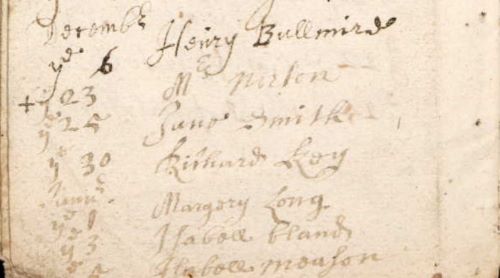 Decemb:r
ye 6 Henry Bullmird
+ ye 23 Mr Norton
ye 25 Jane Smith
ye 30 Richard Key
Janu:r
ye 1 Margery Long
ye 3 Isabell bland
ye Isabell meason